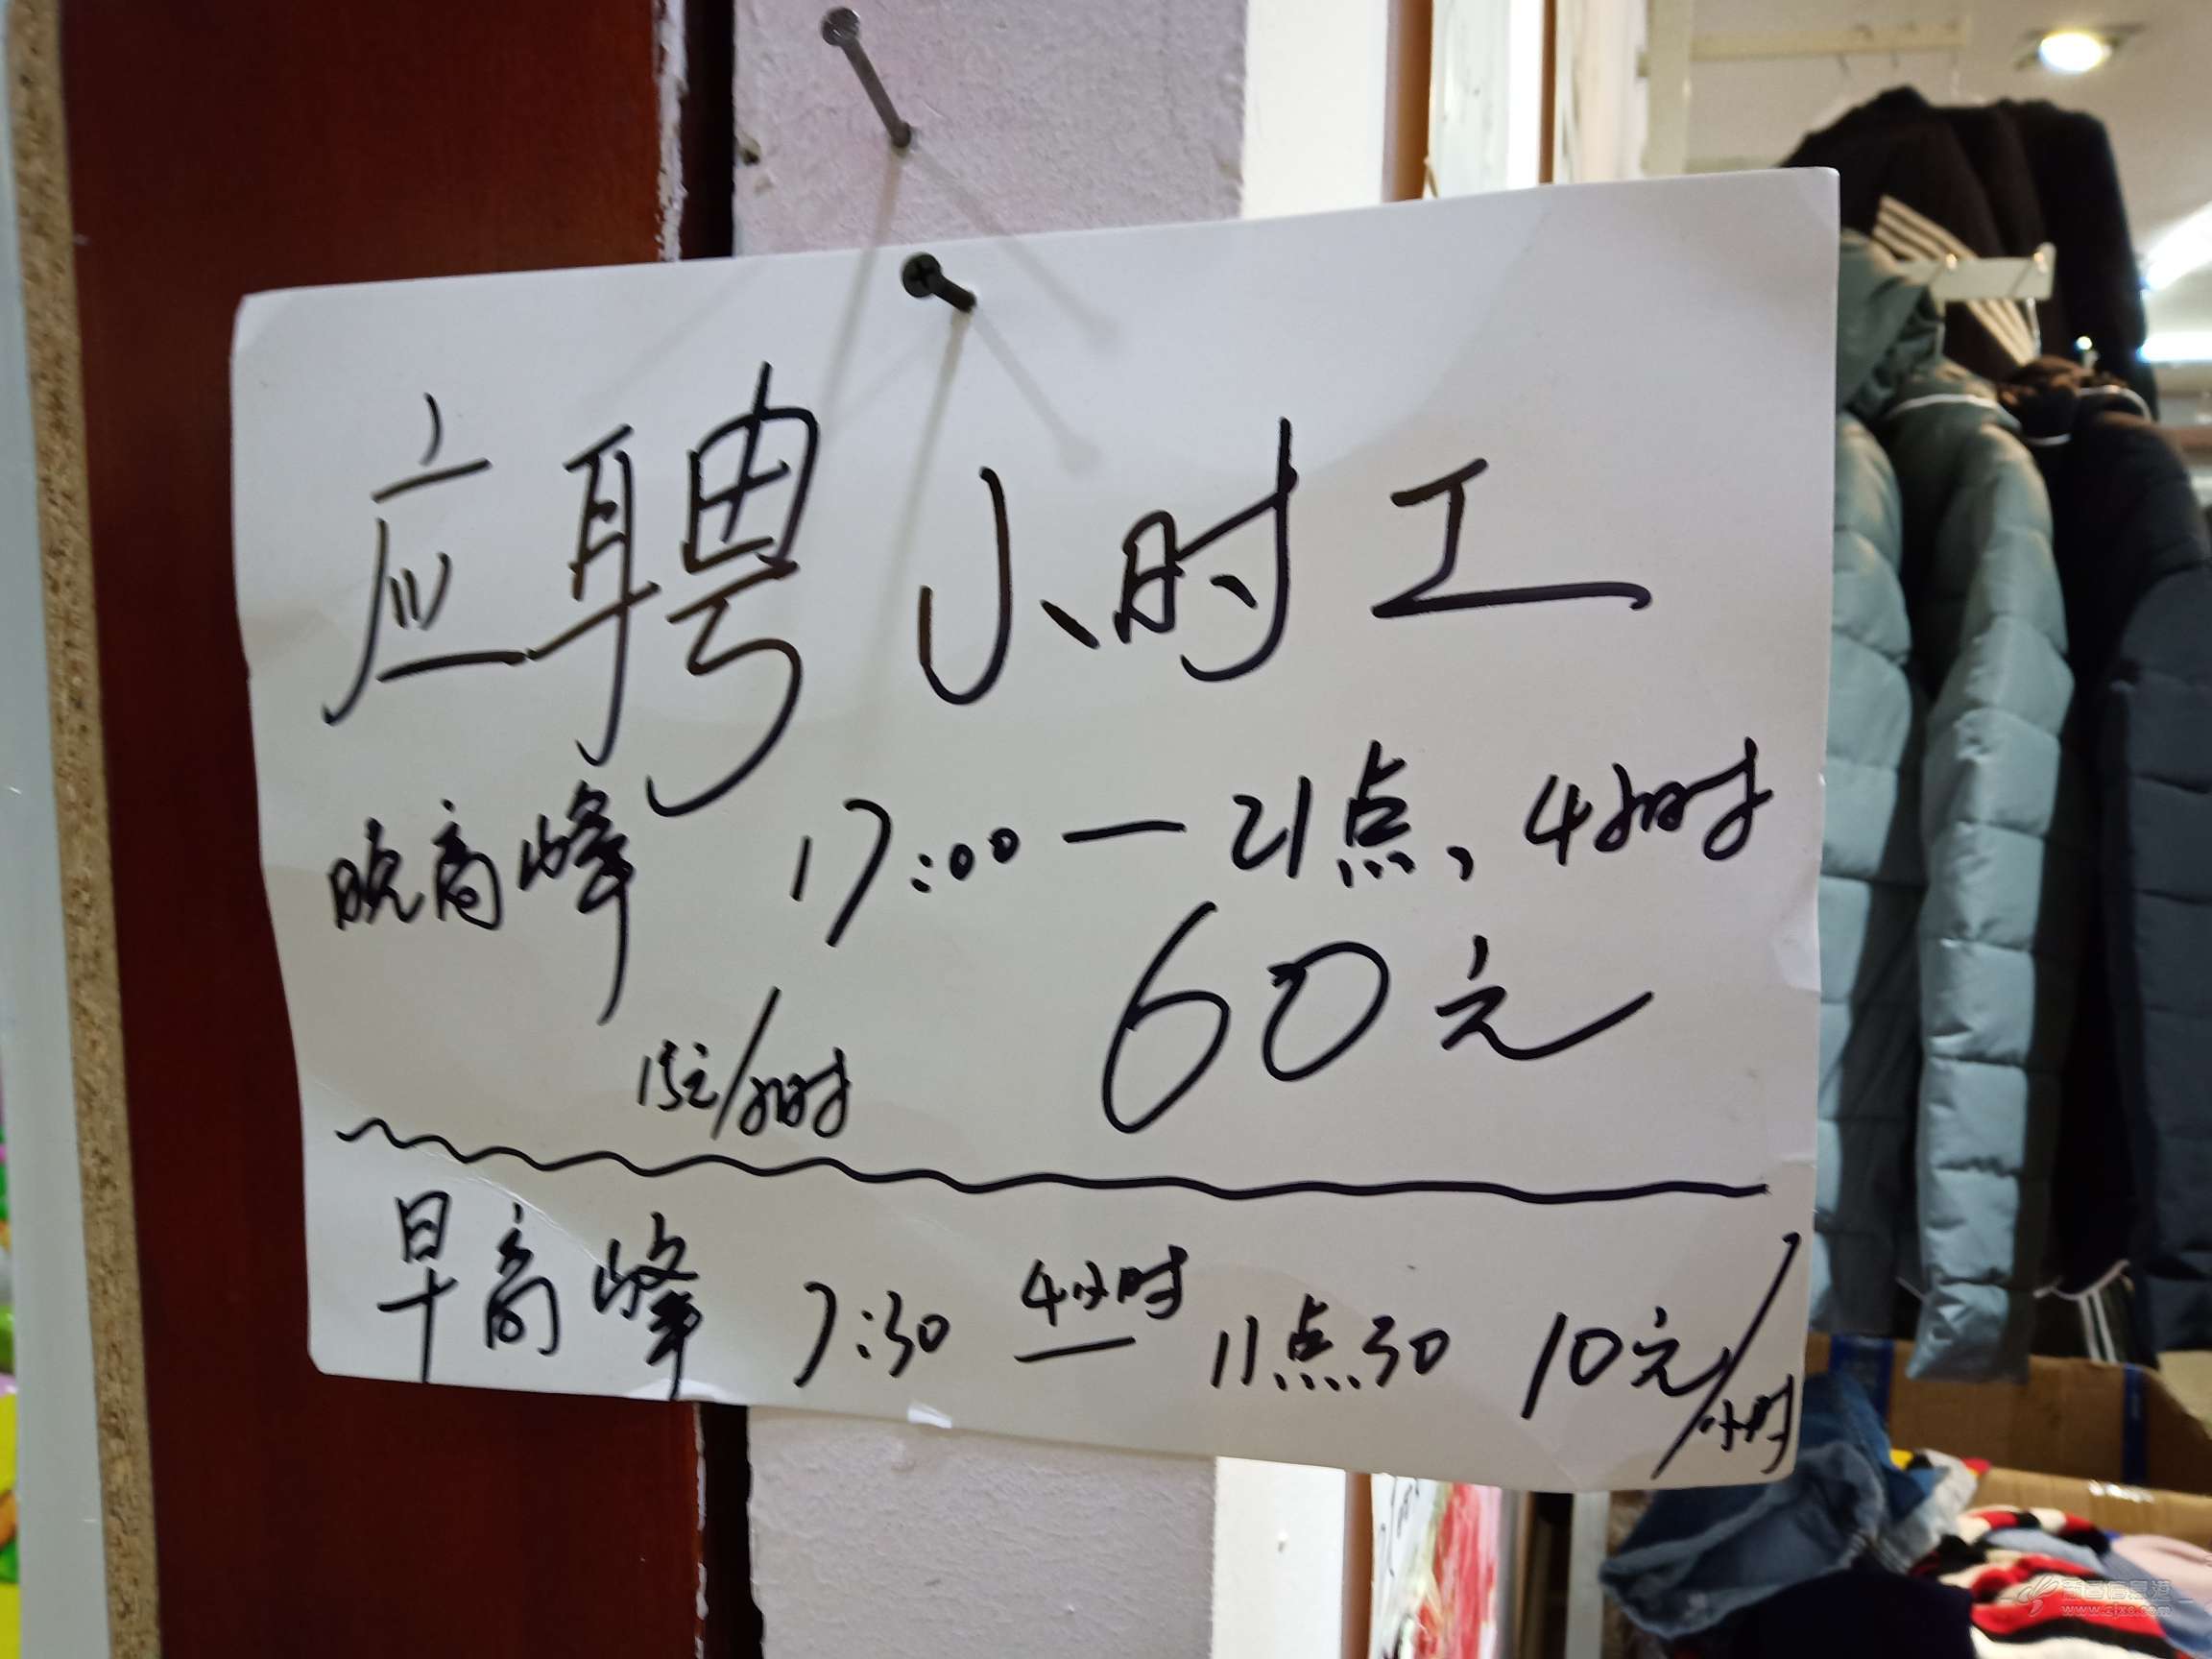 应聘小时工
晚高峰 17:00—21点、4小时
60元
15元/小时
早高峰 7:30 — 11点30 10元/小时
4小时
www.zjxe.com